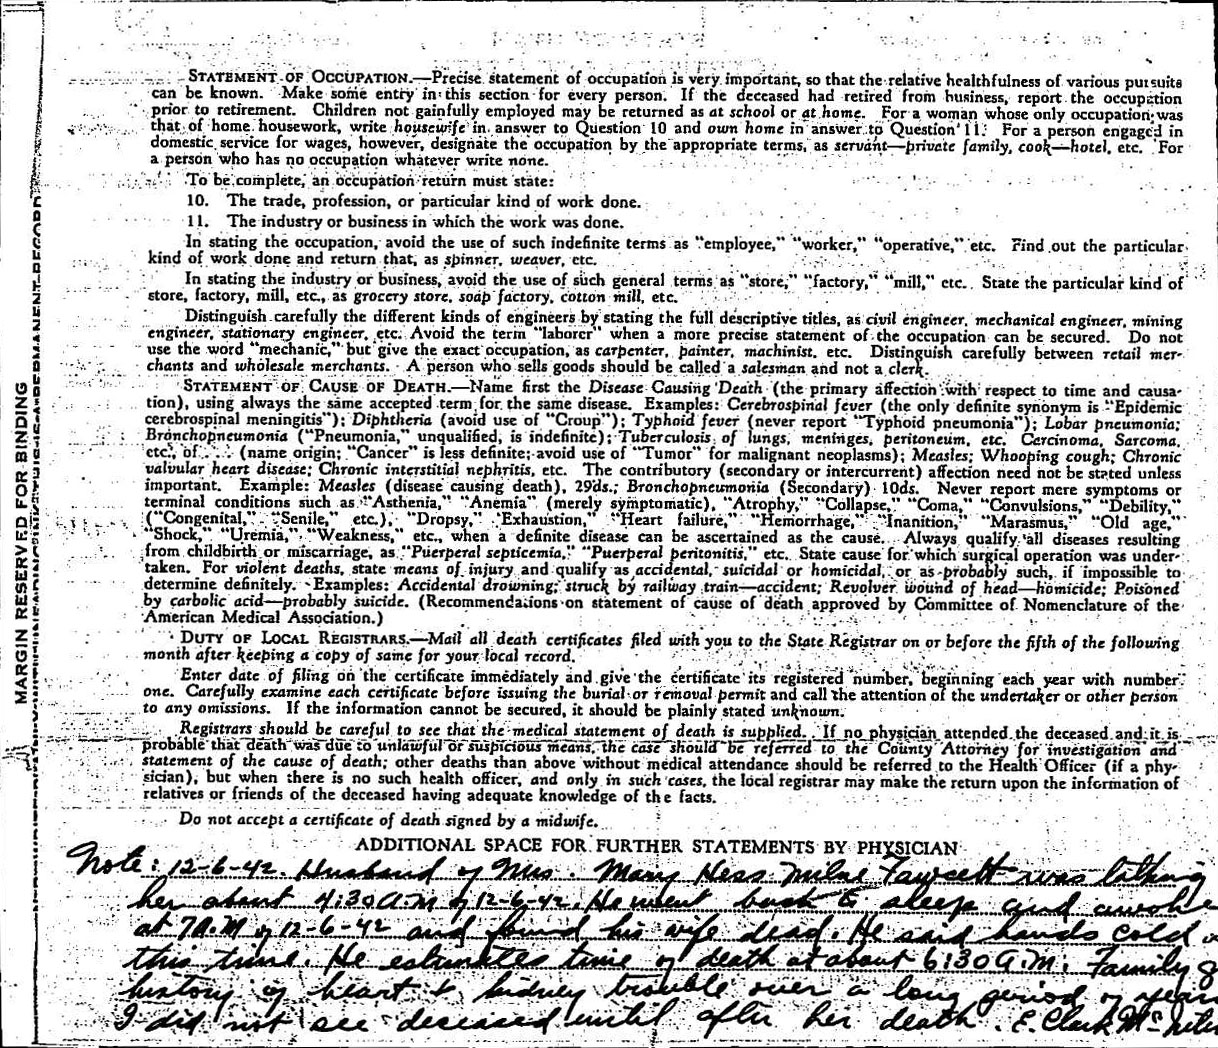 STATEMENT OF OCCUPATION.—Precise statement of occupation is very important, so that the relative healthfulness of various pursuits
can be known. Make some entry in this section for every person. If the deceased had retired from business, report the occupation
prior to retirement. Children not gainfully employed may be returned as at school or at home. For a woman whose only occupation was
that of home housework, write housewife in answer to Question 10 and own home in answer to Question 11. For a person engaged in
domestic service for wages, however, designate the occupation by the appropriate terms, as servant—private family, cook—hotel, etc. For
a person who has no occupation whatever write none.
To be complete, an occupation return must state:
10. The trade, profession, or particular kind of work done.
11. The industry or business in which the work was done.
In stating the occupation, avoid the use of such indefinite terms as "employee," "worker," "operative," etc. Find out the particular
kind of work done and return that, as spinner, weaver, etc.
In stating the industry or business, avoid the use of such general terms as "store," "factory," "mill," etc. State the particular kind of
store, factory, mill, etc., as grocery store, soap factory, cotton mill, etc.
Distinguish carefully the different kinds of engineers by stating the full descriptive titles, as civil engineer, mechanical engineer, mining
engineer, stationary engineer, etc. Avoid the term "laborer" when a more precise statement of the occupation can be secured. Do not
use the word "mechanic," but give the exact occupation, as carpenter, painter, machinist, etc. Distinguish carefully between retail mer-
chants and wholesale merchants. A person who sells goods should be called a salesman and not a clerk.
STATEMENT OF CAUSE OF DEATH.—Name first the Disease Causing Death (the primary affection with respect to time and causa-
tion), using always the same accepted term for the same disease. Examples: Cerebrospinal fever (the only definite synonym is "Epidemic
cerebrospinal meningitis"); Diphtheria (avoid use of "Croup"); Typhoid fever (never report "Typhoid pneumonia"); Lobar pneumonia;
Bronchopneumonia ("Pneumonia," unqualified, is indefinite); Tuberculosis of lungs, meninges, peritoneum, etc. Carcinoma, Sarcoma,
etc., of . . . (name origin; "Cancer" is less definite; avoid use of "Tumor" for malignant neoplasms); Measles; Whooping cough; Chronic
valvular heart disease; Chronic interstitial nephritis, etc. The contributory (secondary or intercurrent) affection need not be stated unless
important. Example: Measles (disease causing death), 29ds.; Bronchopneumonia (Secondary) 10ds. Never report mere symptoms or
terminal conditions such as "Asthenia," "Anemia" (merely symptomatic), "Atrophy," "Collapse," "Coma," "Convulsions," "Debility,"
("Congenital," "Senile," etc.), "Dropsy," "Exhaustion," "Heart failure," "Hemorrhage," "Inanition," "Marasmus," "Old age,"
"Shock," "Uremia," "Weakness," etc., when a definite disease can be ascertained as the cause. Always qualify all diseases resulting
from childbirth or miscarriage, as "Puerperal septicemia," "Puerperal peritonitis," etc. State cause for which surgical operation was under-
taken. For violent deaths, state means of injury and qualify as accidental, suicidal or homicidal, or as probably such, if impossible to
determine definitely. Examples: Accidental drowning; struck by railway train—accident; Revolver wound of head—homicide; Poisoned
by carbolic acid—probably suicide. (Recommendations on statement of cause of death approved by Committee of Nomenclature of the
American Medical Association.)
DUTY OF LOCAL REGISTRARS.—Mail all death certificates filed with you to the State Registrar on or before the fifth of the following
month after keeping a copy of same for your local record.
Enter date of filing on the certificate immediately and give the certificate its registered number, beginning each year with number
one. Carefully examine each certificate before issuing the burial or removal permit and call the attention of the undertaker or other person
to any omissions. If the information cannot be secured, it should be plainly stated unknown.
Registrars should be careful to see that the medical statement of death is supplied. If no physician attended the deceased and it is
probable that death was due to unlawful or suspicious means, the case should be referred to the County Attorney for investigation and
statement of the cause of death; other deaths than above without medical attendance should be referred to the Health Officer (if a phy-
sician), but when there is no such health officer, and only in such cases, the local registrar may make the return upon the information of
relatives or friends of the deceased having adequate knowledge of the facts.
Do not accept a certificate of death signed by a midwife.
ADDITIONAL SPACE FOR FURTHER STATEMENTS BY PHYSICIAN
Note: 12-6-42. Husband of Mrs. Mary Hess Milne Fawcett was talking
her about 4:30 A.M of 12-6-42. He went back to sleep and awoke
at 7A.M of 12-6-42 and found his wife dead. He said hands cold
this time. He estimates time of death at about 6:30 A.M. Family
history of heart & kidney trouble over a long period of years
I did not see deceased until after her death. E. Clark
MARGIN RESERVED FOR BINDING